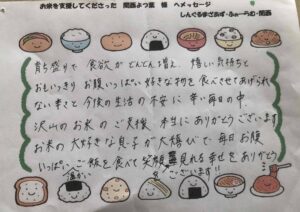 お米を支援してくださった 関西より葉 様 へメッセージ
しんぐるまざあず・ふぉーらむ・関西
育ち盛りで 食欲が どんどん増え、嬉しい気持ちと
おもいっきり お腹いっぱい 好きな物を 食べさせてあげられ
ない辛さと 今後の生活の不安に 辛い毎日の中、
沢山のお米のご支援 本当にありがとうございます
お米の大好きな息子が大喜びで 毎日お腹
いっぱいご飯を食べて 笑顔 見れる幸せをありがとう
ございます!!